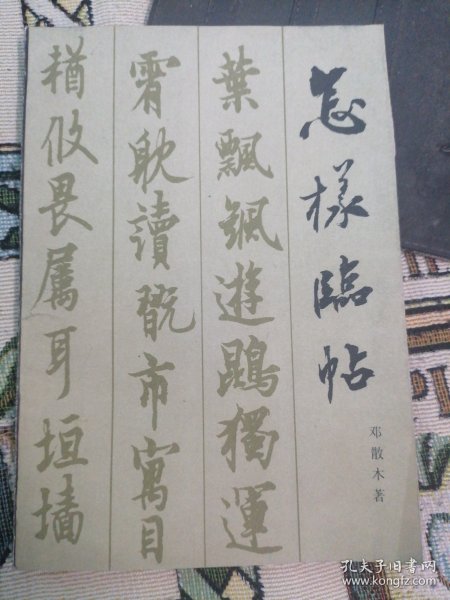 怎樣臨帖
邓散木著
葉飄颻遊鵾獨運
霄耽讀翫市寓目
輶攸畏属耳垣墙
孔夫子旧书网
www.kongfz.com